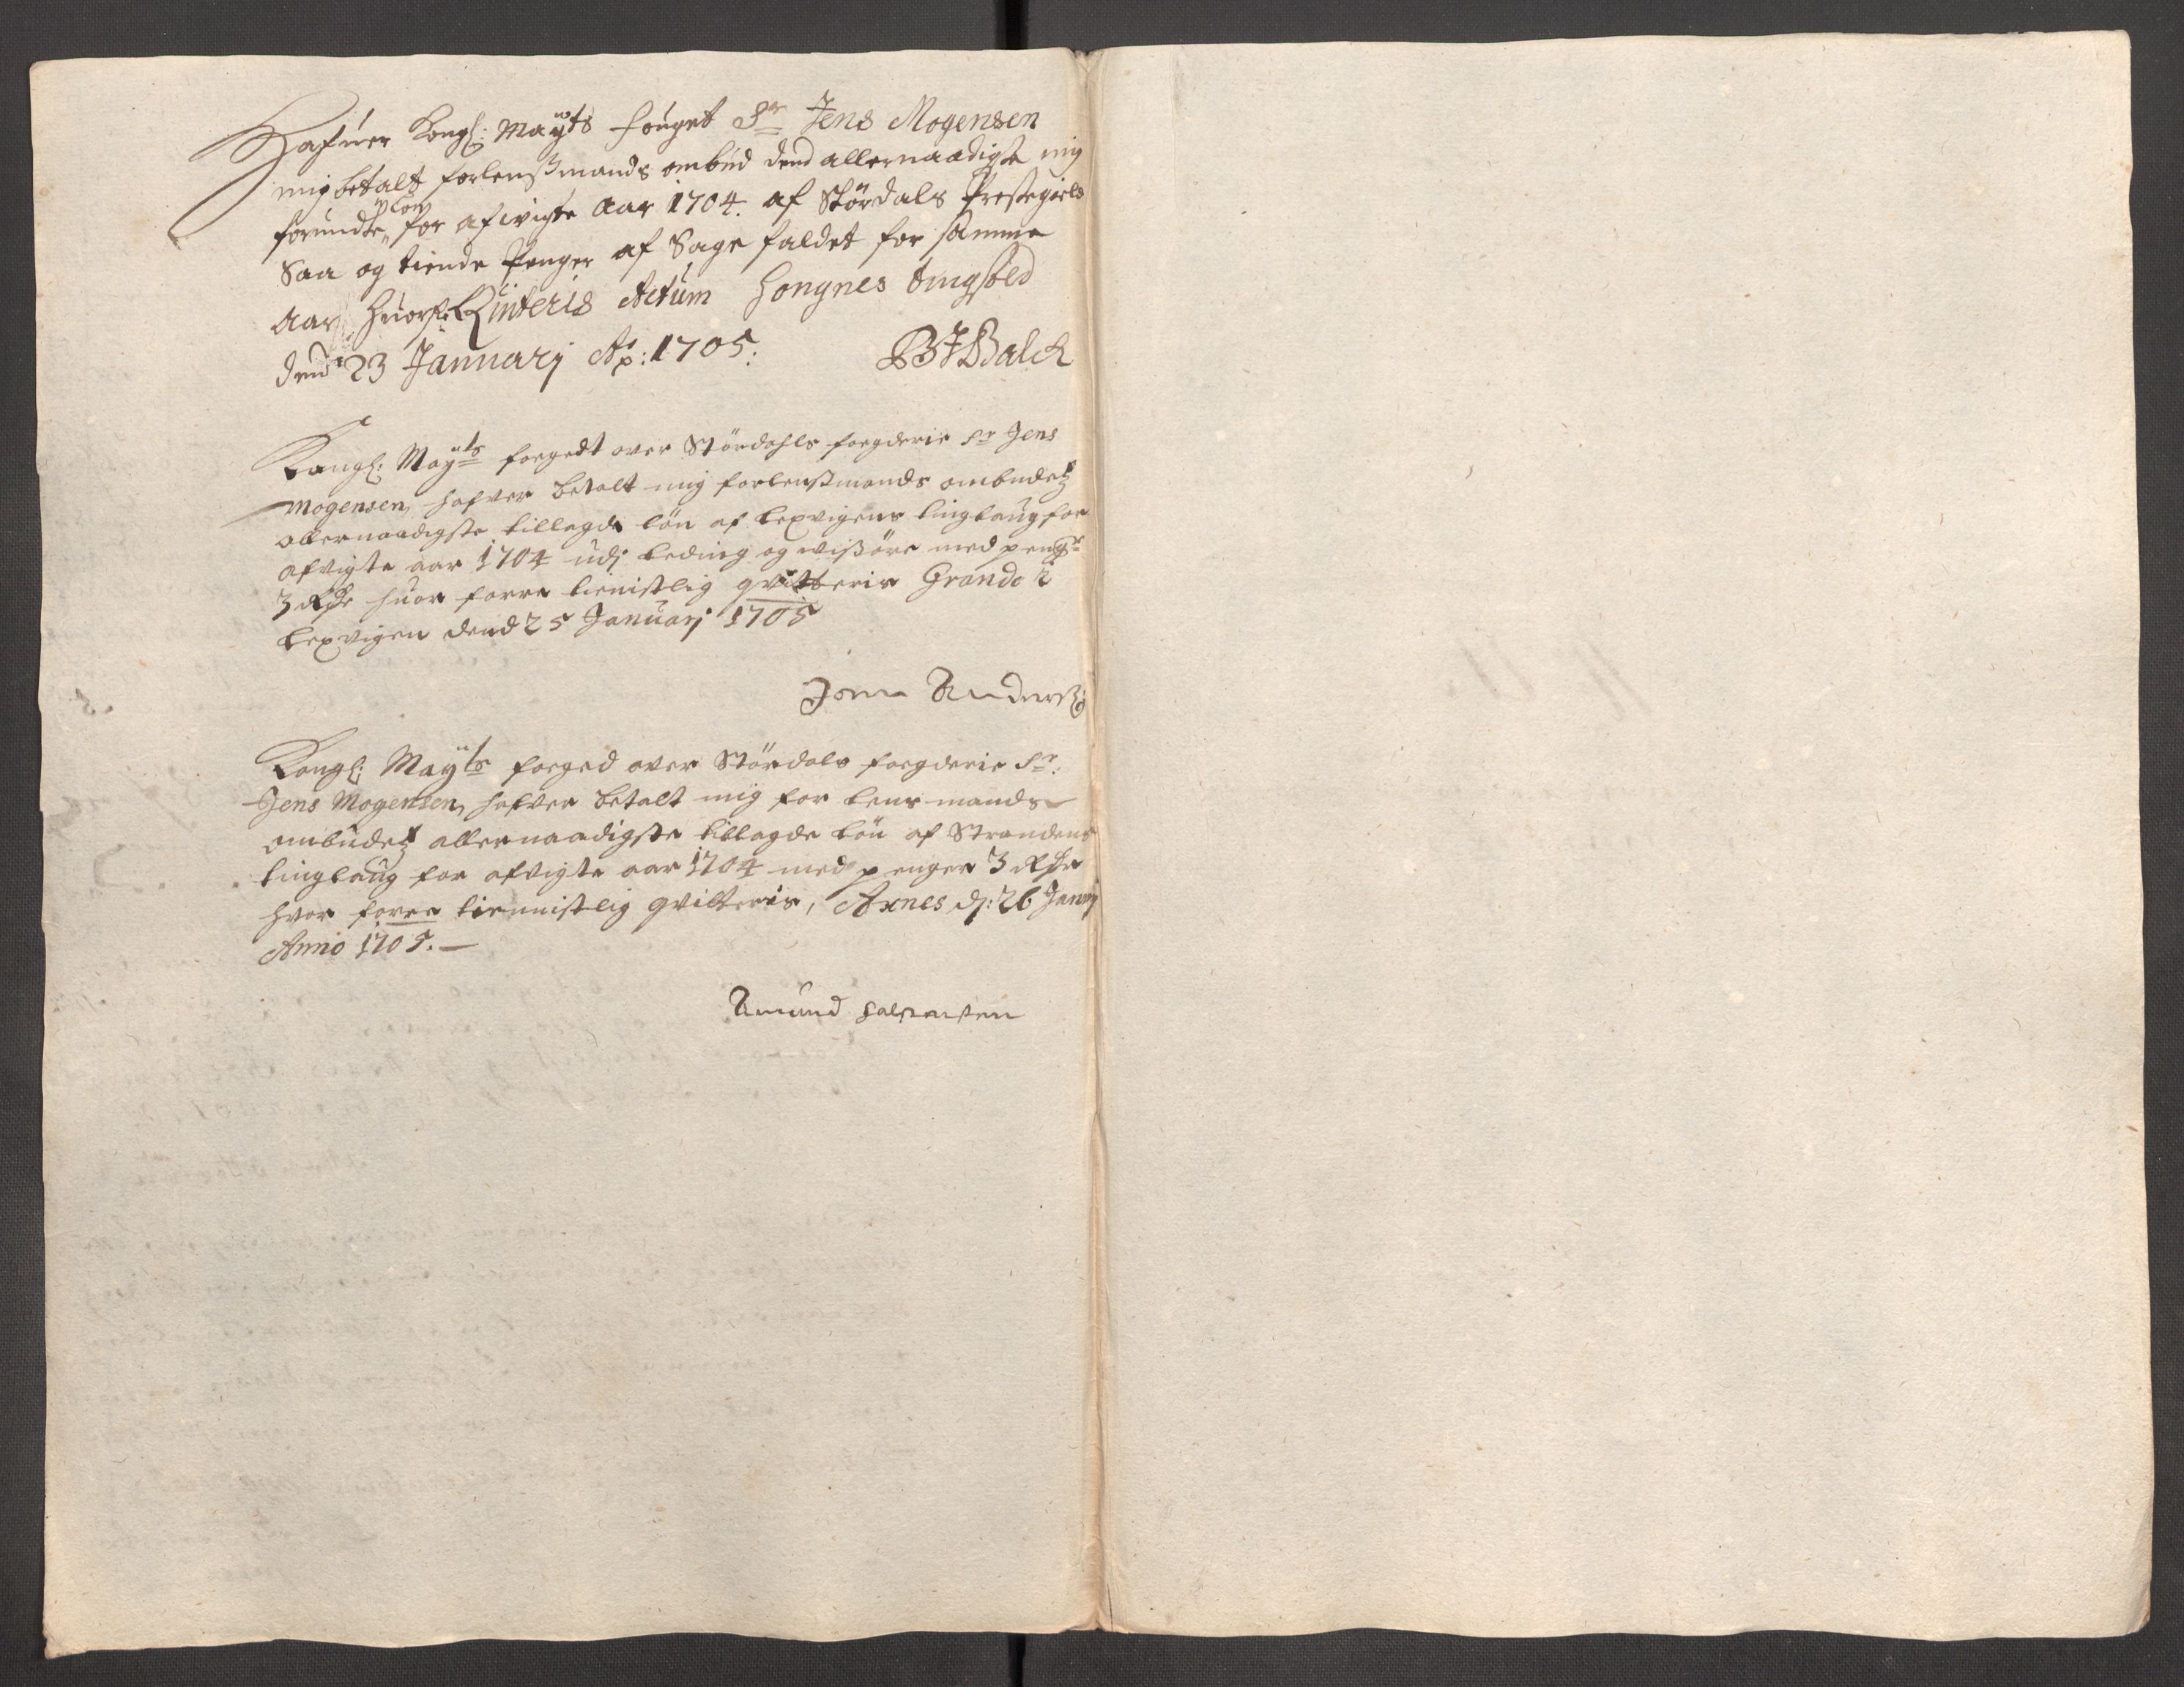 Hafuer Kongl: Mayts fouget Sr Jens Mogensen
mig betalt forlenßmands ombud dend allernaadigste mig
forundte løn for afwigte Aar 1704. af Størdals Prestegield
Saa og tiende Penger af Sage faldet for samme
Aar, huorf: Qviteris Actum Hongnes tingsted
dend 23 Januarj Ao: 1705.
BJBalck
Kongl: Mayts foegedt over Størdahls foegderie Sr Jens
Mogensen, hafver betalt mig forlenßmands ombudetz
allernaadigste tillagde løn af Lexvigens tinglaug for
afvigte aar 1704 udj leding og wißøre med peng
3 Rdr huor forre tienistlig qvitteris Grande i
Lexvigen dend 25 Januarj 1705
Jon Anderß:
Kongl: Mayts foeged over Størdals foegderie Sr:
Jens Mogensen, hafver betalt mig for lensmands
ombudetz allernaadigste tillagde løn af Strandens
tinglaug for afvigte aar 1704 med penger 3 Rdr
hvor forre tiennistlig qvitteris, Axnes dj: 26 Janrj
Anno 1705.
Amund